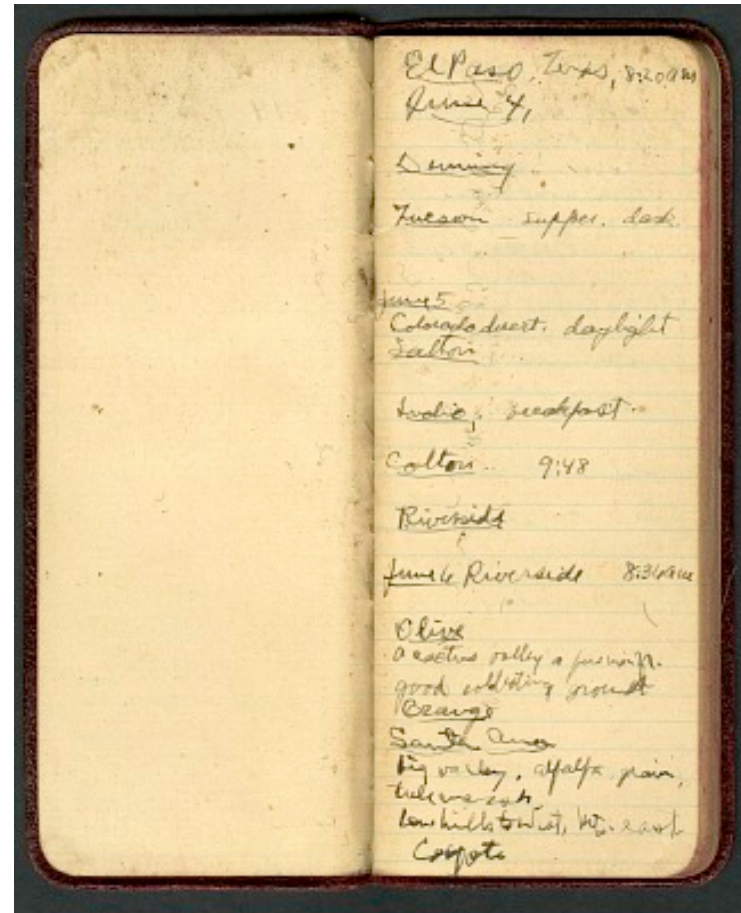 El Paso, Texas, 8:20 am
June 4,
Deming
Tucson supper. dark.
June 5
Colorado desert. daylight
Salton
Indio, breakfast.
Colton. 9:48
Riverside
June 6 Riverside 8:36 am
Olive
a cactus valley &
good collecting ground
Orange
Santa Ana
big valley, alfalfa, grain,
tule marsh,
low hills to west, mts. east
Coyote